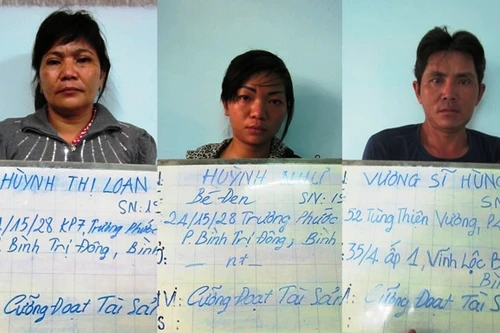 HUỲNH THỊ LOAN
SN: 19
/15/28 KP7, Trường Phước
. Bình Trị Đông, Bình
Cưỡng Đoạt Tài Sản
HUỲNH
Bé Đen SN: 19
24/15/28 Trường Phước
P. Bình Trị Đông, Bình
nt
Vi: Cưỡng Đoạt Tài Sản
VƯƠNG SĨ HÙNG
SN:
52 Tùng Thiện Vương, P
35/4 ấp 1, Vĩnh Lộc B
Bìn
: Cưỡng Đoạt Tà